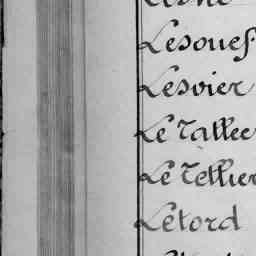 Lesouef
Lesvier
Le Tallee
Le Tellier
Letord